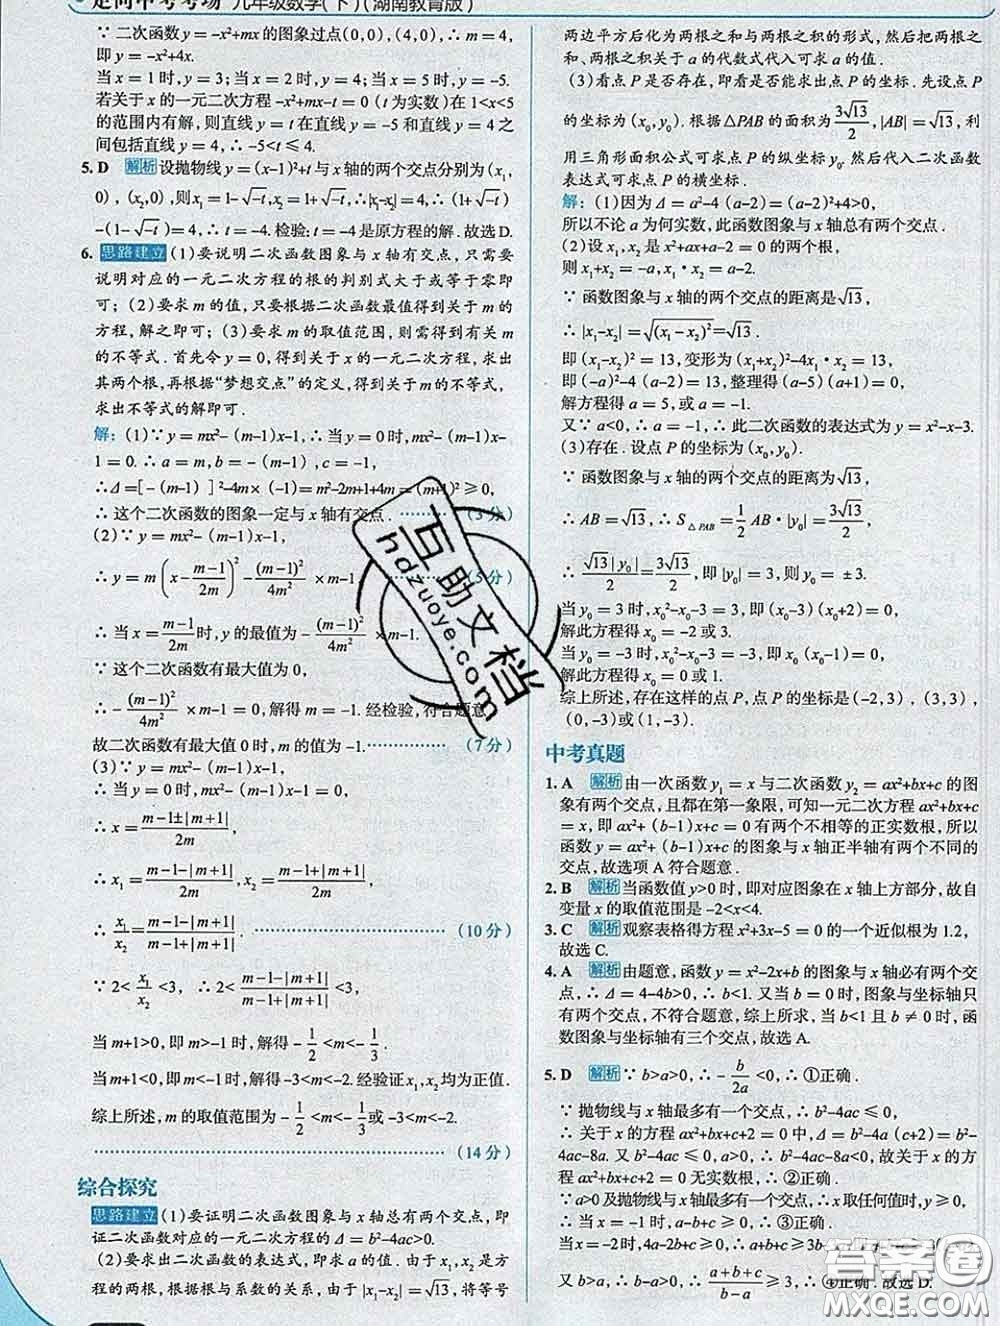 走向中考考场 九年级数学(下)(湖南教育版)
∵ 二次函数 y=-x²+mx 的图象过点(0,0),(4,0),∴ m=4,
即 y=-x²+4x.
当 x=1 时,y=3;当 x=2 时,y=4;当 x=5 时,y=-5.
若关于 x 的一元二次方程 -x²+mx-t=0 (t 为实数)在 1<x<5
的范围内有解,则直线 y=t 在直线 y=-5 和直线 y=4 之
间包括直线 y=4,∴ -5<t≤4.
5. D 解析 设抛物线 y=(x-1)²+t 与 x 轴的两个交点分别为 (x₁,
0),(x₂,0),则 x₁=1-√-t,x₂=1+√-t,∴|x₁-x₂|=4,∴ (1+√-t)
-(1-√-t)=4,∴ t=-4. 检验:t=-4 是原方程的解. 故选 D.
6. 思路建立 (1)要说明二次函数图象与 x 轴有交点,只需要
说明对应的一元二次方程的根的判别式大于或等于零即
可;(2)要求 m 的值,只要根据二次函数最值得到关于 m 的
方程,解之即可;(3)要求 m 的取值范围,则需得到有关 m
的不等式. 首先令 y=0,得到关于 x 的一元二次方程,求出
其两个根,再根据“梦想交点”的定义,得到关于 m 的不等式,
求出不等式的解即可.
解:(1)∵ y=mx²-(m-1)x-1,∴ 当 y=0 时,mx²-(m-1)x-
1=0. ∴ a=m,b=-(m-1),c=-1,
∴Δ=[-(m-1)]²-4m×(-1)=m²-2m+1+4m=(m+1)²≥0,
∴ 这个二次函数的图象一定与 x 轴有交点. (3分)
(2)∵ y=mx²-(m-1)x-1,
∴ y=m(x-(m-1)/2m)²-(m-1)²/4m²×m-1. (5分)
∴ 当 x=(m-1)/2m 时,y 的最值为 -(m-1)²/4m²×m-1.
∵ 这个二次函数有最大值为 0,
∴ -(m-1)²/4m²×m-1=0,解得 m=-1. 经检验,符合题意.
故二次函数有最大值 0 时,m 的值为 -1. (7分)
(3)∵ y=mx²-(m-1)x-1,
∴ 当 y=0 时,mx²-(m-1)x-1=0,
∴ x=(m-1±|m+1|)/2m,
∴ x₁=(m-1-|m+1|)/2m,x₂=(m-1+|m+1|)/2m,
∴ x₁/x₂=(m-1-|m+1|)/(m-1+|m+1|). (10分)
∵ 2<x₁/x₂<3,∴ 2<(m-1-|m+1|)/(m-1+|m+1|)<3,
当 m+1>0,即 m>-1 时,解得 -1/2<m<-1/3.
当 m+1<0,即 m<-1 时,解得 -3<m<-2. 经验证 x₁,x₂ 均为正值.
综上所述,m 的取值范围为 -1/2<m<-1/3 或 -3<m<-2.
(14分)
综合探究
思路建立 (1)要证明二次函数图象与 x 轴总有两个交点,即
证二次函数对应的一元二次方程的 Δ=b²-4ac>0.
(2)要求出二次函数的表达式,即求 a 的值. 由于 x₁,x₂ 是方
程的两根,根据根与系数的关系,由于 |x₁-x₂|=√13,将等号
两边平方后化为两根之和与两根之积的形式,然后把两根之
和、两根之积关于 a 的代数式代入可求 a 的值.
(3)看点 P 是否存在,即看是否能求出点 P 的坐标. 先设点 P
的坐标为 (x₀,y₀). 根据 △PAB 的面积为 3√13/2,|AB|=√13,利
用三角形面积公式可求点 P 的纵坐标 y₀. 然后代入二次函数
表达式可求点 P 的横坐标.
解:(1)因为 Δ=a²-4(a-2)=(a-2)²+4>0,
所以不论 a 为何实数,此函数图象与 x 轴总有两个交点.
(2)设 x₁,x₂ 是 x²+ax+a-2=0 的两个根,
则 x₁+x₂=-a,x₁·x₂=a-2.
∵ 函数图象与 x 轴的两个交点的距离是√13,
∴ |x₁-x₂|=√(x₁-x₂)²=√13.
即 (x₁-x₂)²=13,变形为 (x₁+x₂)²-4x₁·x₂=13,
即 (-a)²-4(a-2)=13,整理得 (a-5)(a+1)=0,
解方程得 a=5,或 a=-1.
又∵ a<0,∴ a=-1,∴ 此二次函数的表达式为 y=x²-x-3.
(3)存在. 设点 P 的坐标为 (x₀,y₀).
∵ 函数图象与 x 轴的两个交点的距离为√13,
∴ AB=√13,∴ S△PAB=1/2 AB·|y₀|=3√13/2,
∴ √13|y₀|/2=3√13/2,即 |y₀|=3,则 y₀=±3.
当 y₀=3 时,x₀²-x₀-3=3,即 (x₀-3)(x₀+2)=0,
解此方程得 x₀=-2 或 3.
当 y₀=-3 时,x₀²-x₀-3=-3,即 x₀(x₀-1)=0,
解此方程得 x₀=0 或 1.
综上所述,存在这样的点 P,点 P 的坐标是 (-2,3),(3,3),
(0,-3)或(1,-3).
中考真题
1. A 解析 由一次函数 y₁=x 与二次函数 y₂=ax²+bx+c 的图
象有两个交点,且都在第一象限,可知一元二次方程 ax²+bx+c
=x,即 ax²+(b-1)x+c=0 有两个不相等的正实数根,所以
函数 y=ax²+(b-1)x+c 的图象与 x 轴正半轴有两个不同的
交点,故选项 A 符合题意.
2. B 解析 当函数值 y>0 时,即对应图象在 x 轴上方部分,故自
变量 x 的取值范围是 -2<x<4.
3. C 解析 观察表格得方程 x²+3x-5=0 的一个近似根为 1.2,
故选 C.
4. A 解析 由题意,函数 y=x²-2x+b 的图象与 x 轴必有两个交
点,∴ Δ=4-4b>0,∴ b<1. 又当 b=0 时,图象与坐标轴只
有两个交点,不符合题意,综上所求,当 b<1 且 b≠0 时,函
数图象与坐标轴有三个交点,故选 A.
5. D 解析 ∵ b>a>0,∴ -b/2a<0,∴ ①正确.
∵ 抛物线与 x 轴最多有一个交点,∴ b²-4ac≤0,
∴ 关于 x 的方程 ax²+bx+c+2=0 中,Δ=b²-4a(c+2)=b²-
4ac-8a. 又 b²-4ac≤0,a>0,∴ b²-4ac-8a<0. 故关于 x 的
方程 ax²+bx+c+2=0 无实数根,∴ ②正确.
∵a>0 及抛物线与 x 轴最多有一个交点,∴ x 取任何值时,y≥0,
∴ 当 x=-1 时,a-b+c≥0,∴ ③正确.
当 x=-2 时,4a-2b+c≥0,∴ a+b+c≥3b-
又 b>a,∴ (a+b+c)/(b-a)≥3,∴ ④正确. 故选 D.
互助文档
hdzuoye.com
答案圈
MXQE.COM